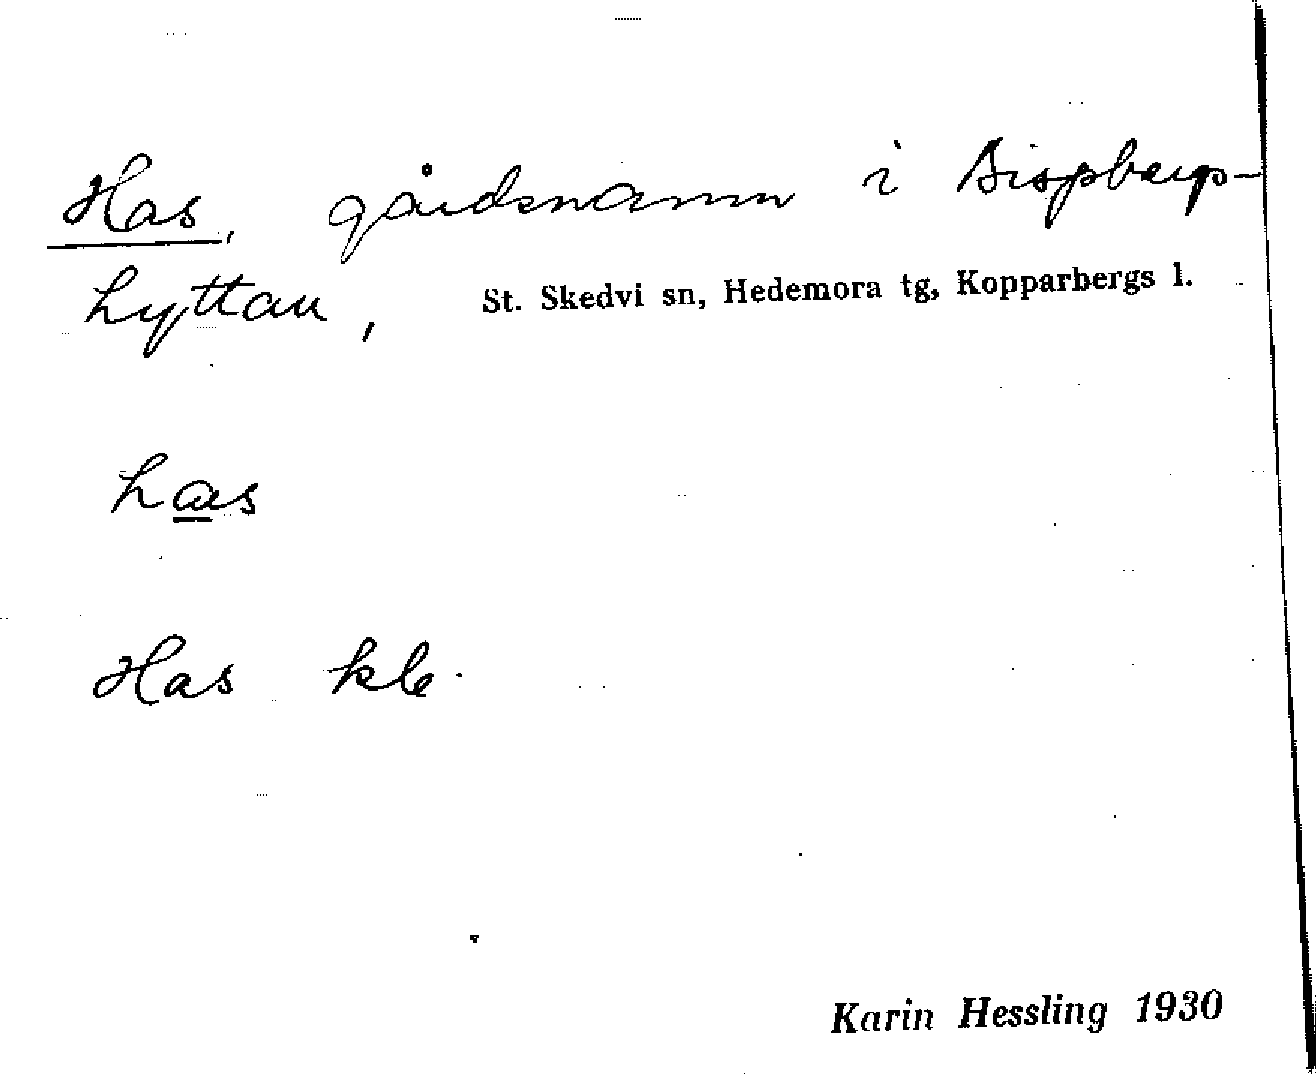 Has, gårdsnamn i Bispbergs-
hyttan, St. Skedvi sn, Hedemora tg, Kopparbergs l.
has
Has kb.
Karin Hessling 1930